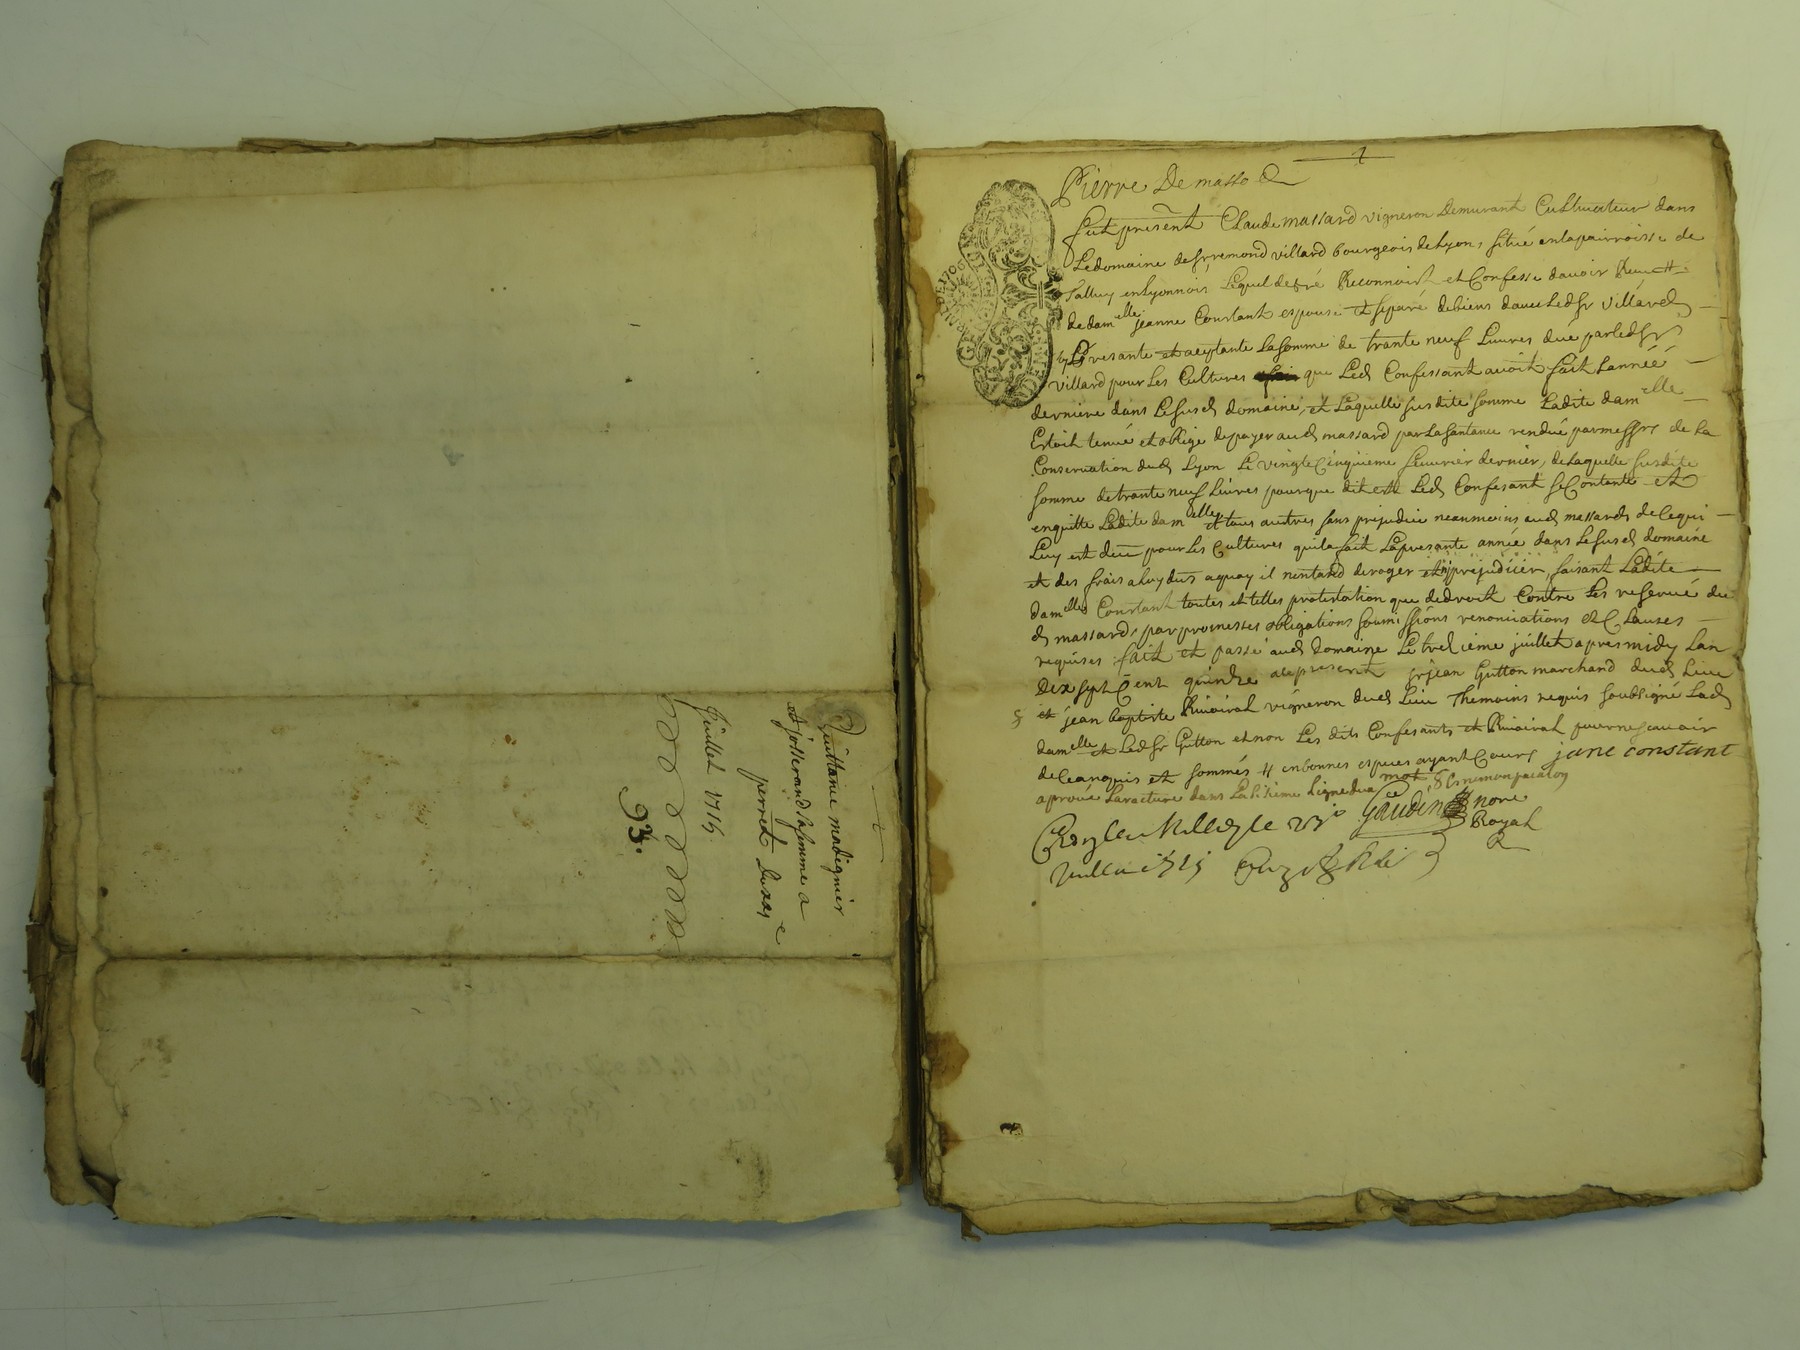 Quittance mardiguier
et josserand sa femme a
perret Du xxe
juillet 1715
93.
Pierre Demasso
fut present Claude massard vigneron Demurant Cultivateur dans
Le domaine de sr remond villard bourgeois de Lyon, situé en la pairroisse de
Talluy en Lyonnois, Lequel de gré Reconnoist et Confesse davoir Receu #
de dam elle jeanne Constant espouse et separé de biens davec Led sr villard
presante et aceptante La somme de trante neuf Livres düe par led sr
villard pour Les Cultures que Led Confessant avoit fait L'année
derniere dans Le susd domaine, et Laquelle susdite somme Ladite dam elle
Estoit tenüe et oblige de payer aud massard par La santance rendüe par messrs de La
Conservation dud Lyon Le vingt Cinquieme feuvrier dernier, de Laquelle susdite
somme de trante neuf Livres Led Confesant se Contante et
enquitte Ladite dam elle et tous autres sans prejudice neanmoins aud massard de Ce qui
Luy est deu pour Les Cultures quil a fait La presante année dans Le susd domaine
et des frais a Luy dus aquoy il nentand deroger ny prejudicier, faisant Ladite
dam elle Constant toutes et telles protestation que de droit Contre Les reservé du
d massard, par promesses obligations soumissions renonciations et Clauses
requises fait et passé aud Domaine Le treizieme juillet apres midy Lan
Dix sept Cent quinze a Le present sr jean Gutton marchand dud Lieu
et jean baptiste Rivoirat vigneron dud Lieu Themoins requis soubsigné Lad
dam elle et Led sr Gutton et non Les dits Confesants et Rivoirat pour ne scavoir
de Ce anquis et sommés # en bonnes especes ayant Cours jane constant
aprouvé La rature dans La sixieme Ligne dun mot
Gaudin nore
Royal